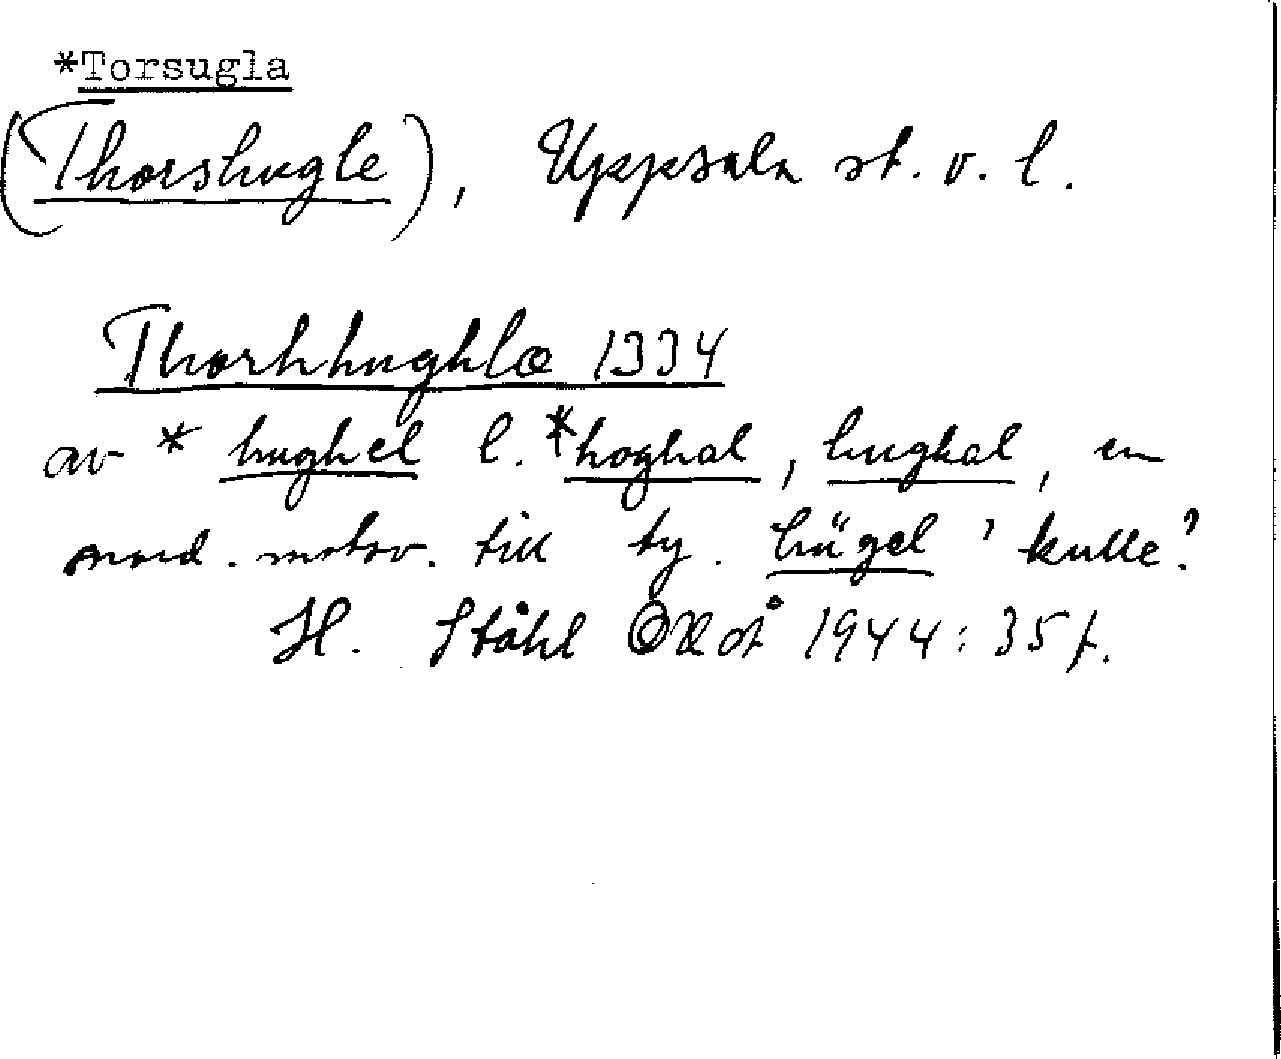 *Torsugla
(Thorshugle), Uppsala st. v. l.
Thorhhughlæ 1334
av * hughel l. *hoghal, hughal, en
nord. motsv. till ty. hügel 'kulle'.
H. Ståhl 1944: 35 f.